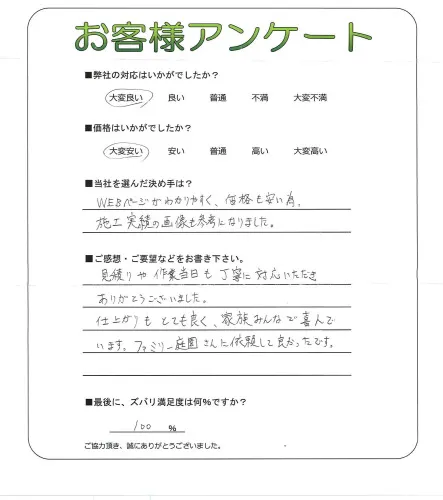 お客様アンケート
■弊社の対応はいかがでしたか?
大変良い 良い 普通 不満 大変不満
■価格はいかがでしたか?
大変安い 安い 普通 高い 大変高い
■当社を選んだ決め手は?
WEBページがわかりやすく、価格も安い為。
施工実績の画像も参考になりました。
■ご感想・ご要望などをお書き下さい。
見積りや作業当日も丁寧に対応いただき
ありがとうございました。
仕上がりもとても良く、家族みんなで喜んで
います。ファミリー庭園さんに依頼して良かったです。
■最後に、ズバリ満足度は何%ですか?
100 %
ご協力頂き、誠にありがとうございました。